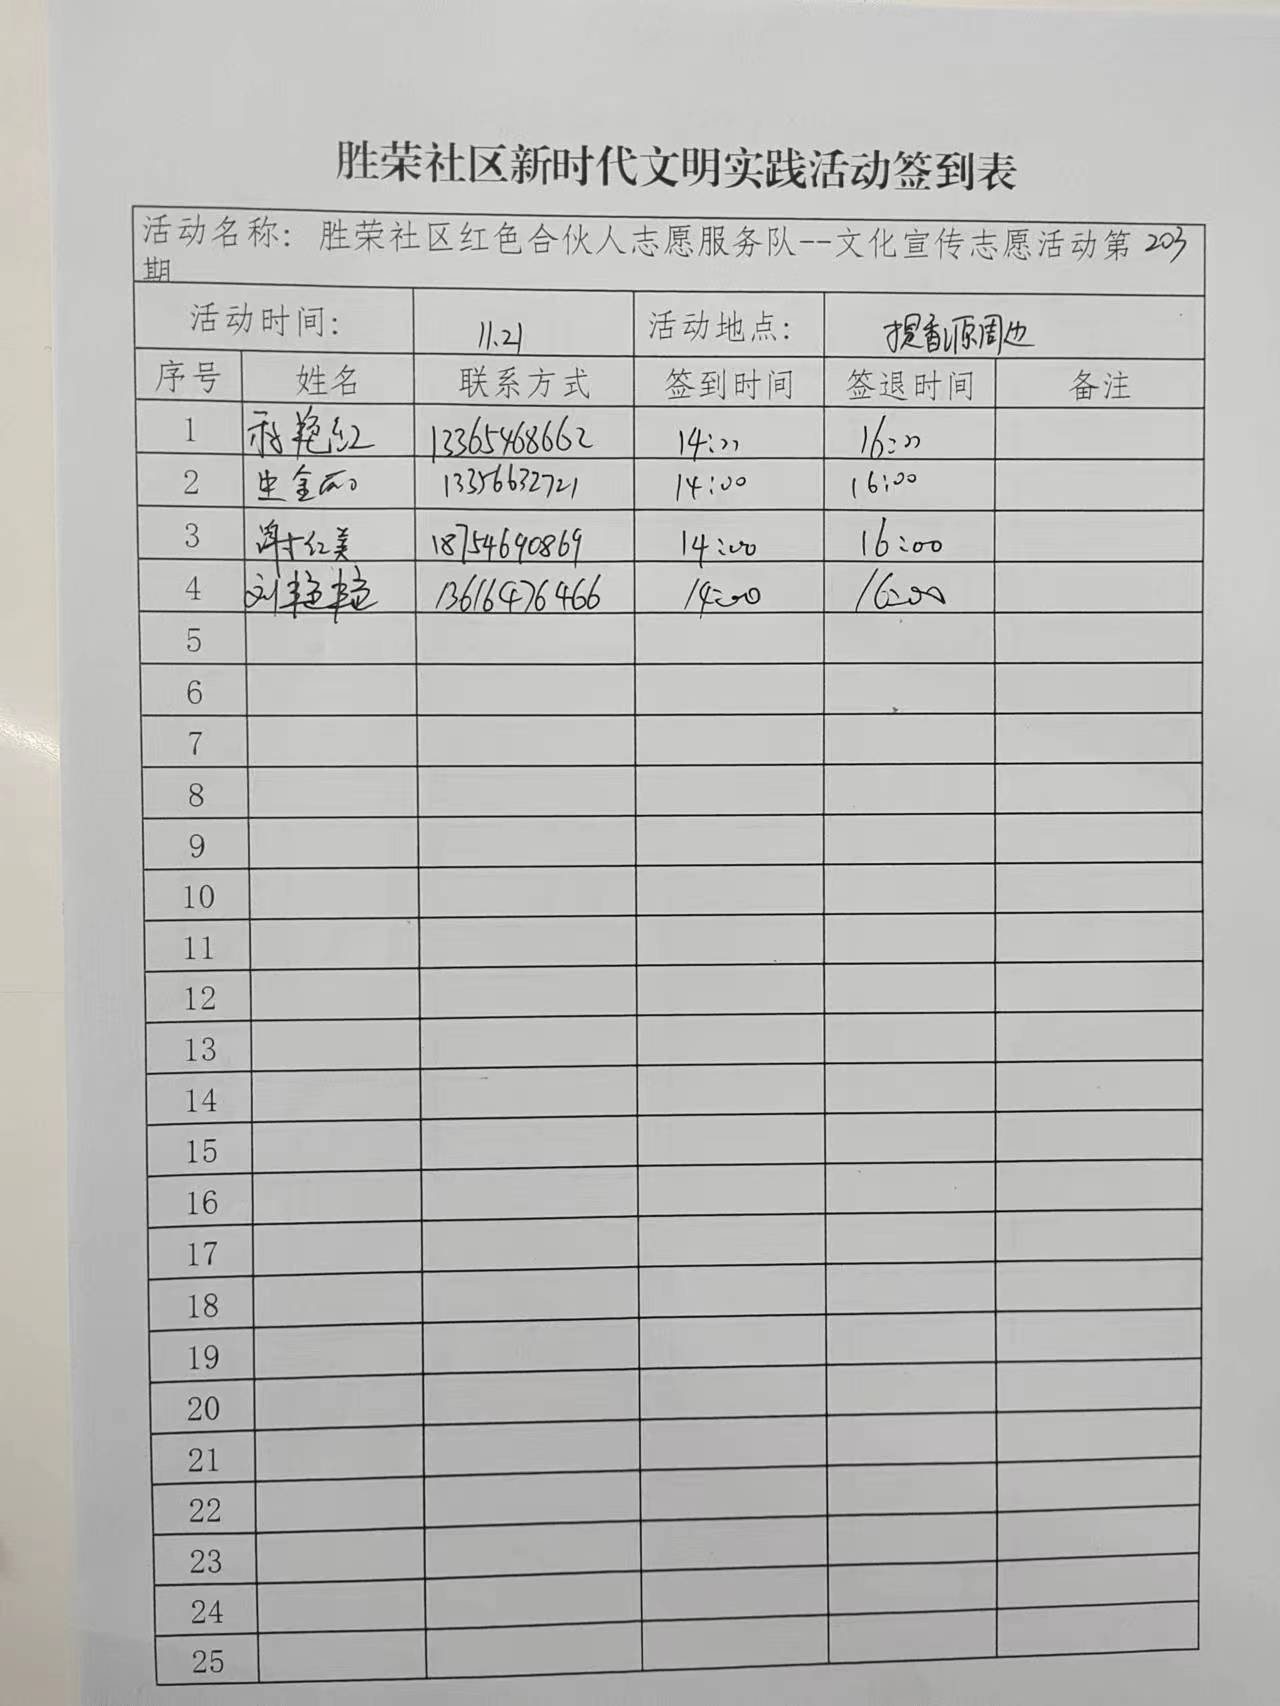 胜荣社区新时代文明实践活动签到表
活动名称：胜荣社区红色合伙人志愿服务队--文化宣传志愿活动第203
期
活动时间： 11.21 活动地点： 提香源周边
序号 姓名 联系方式 签到时间 签退时间 备注
1 艳红 13365468662 14:00 16:00
2 史金丽 13356632721 14:00 16:00
3 谢红美 18754690869 14:00 16:00
4 刘艳艳 13616476466 14:00 16:00
5
6
7
8
9
10
11
12
13
14
15
16
17
18
19
20
21
22
23
24
25